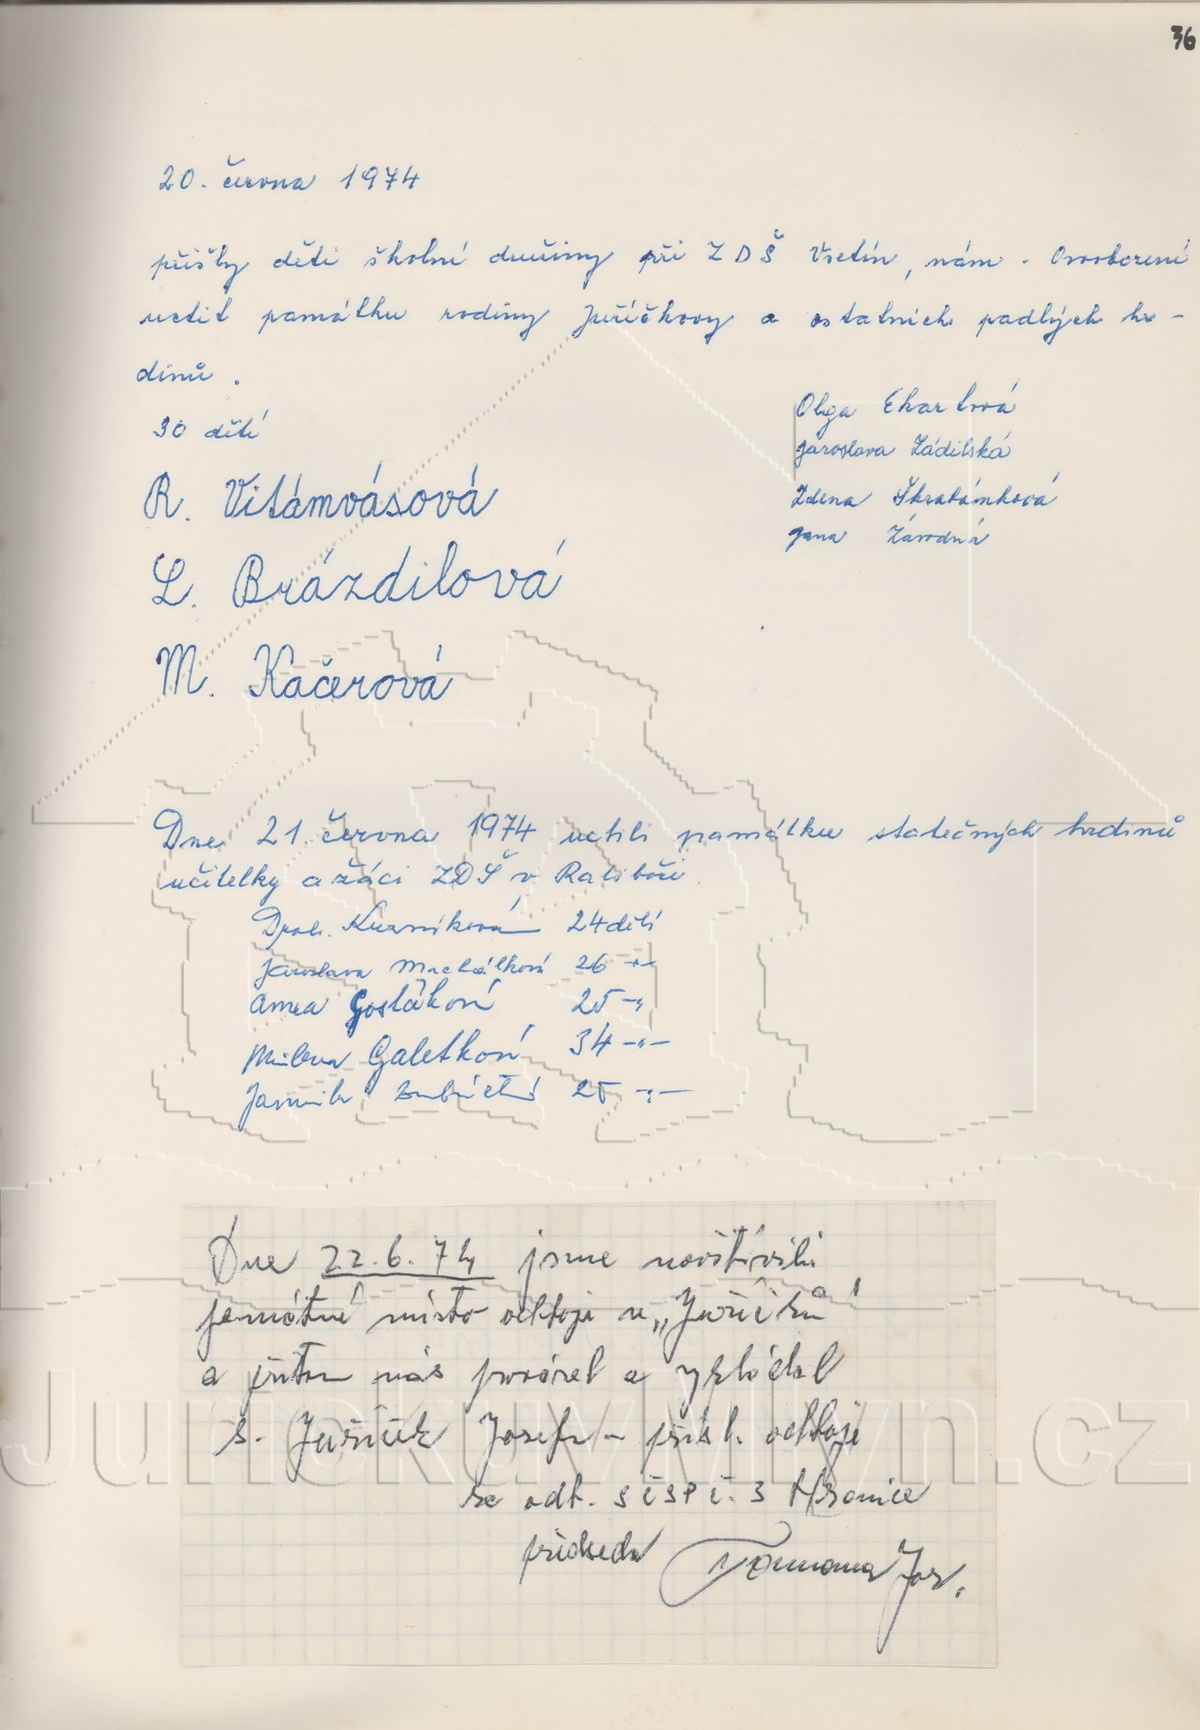 36
20. června 1974
přišly děti školní družiny při ZDŠ Vsetín, nám. Osvobození
uctít památku rodiny Juříčkovy a ostatních padlých hr-
dinů.
30 dětí
Olga Ekartová
Jaroslava Zádilská
Zdena Škrabánková
Jana Závodná
R. Vitámvásová
L. Brázdilová
M. Kačerová
Dne 21. června 1974 uctili památku statečných hrdinů
učitelky a žáci ZDŠ v Ratiboři.
Kuzníková 24 dětí
Jaroslava Machálková 26 -"-
Anna 25 -"-
Milena Galetková 34 -"-
Jarmila 25 -"-
Dne 22.6.74 jsme navštívili
památné místo odboje u „Juříčků"
a přitom nás provázel a vykládal
s. Juříček Josef - přísl. odboje
za odb. SČSP č. 3 Hranice
předseda
JurickuvMlyn.cz